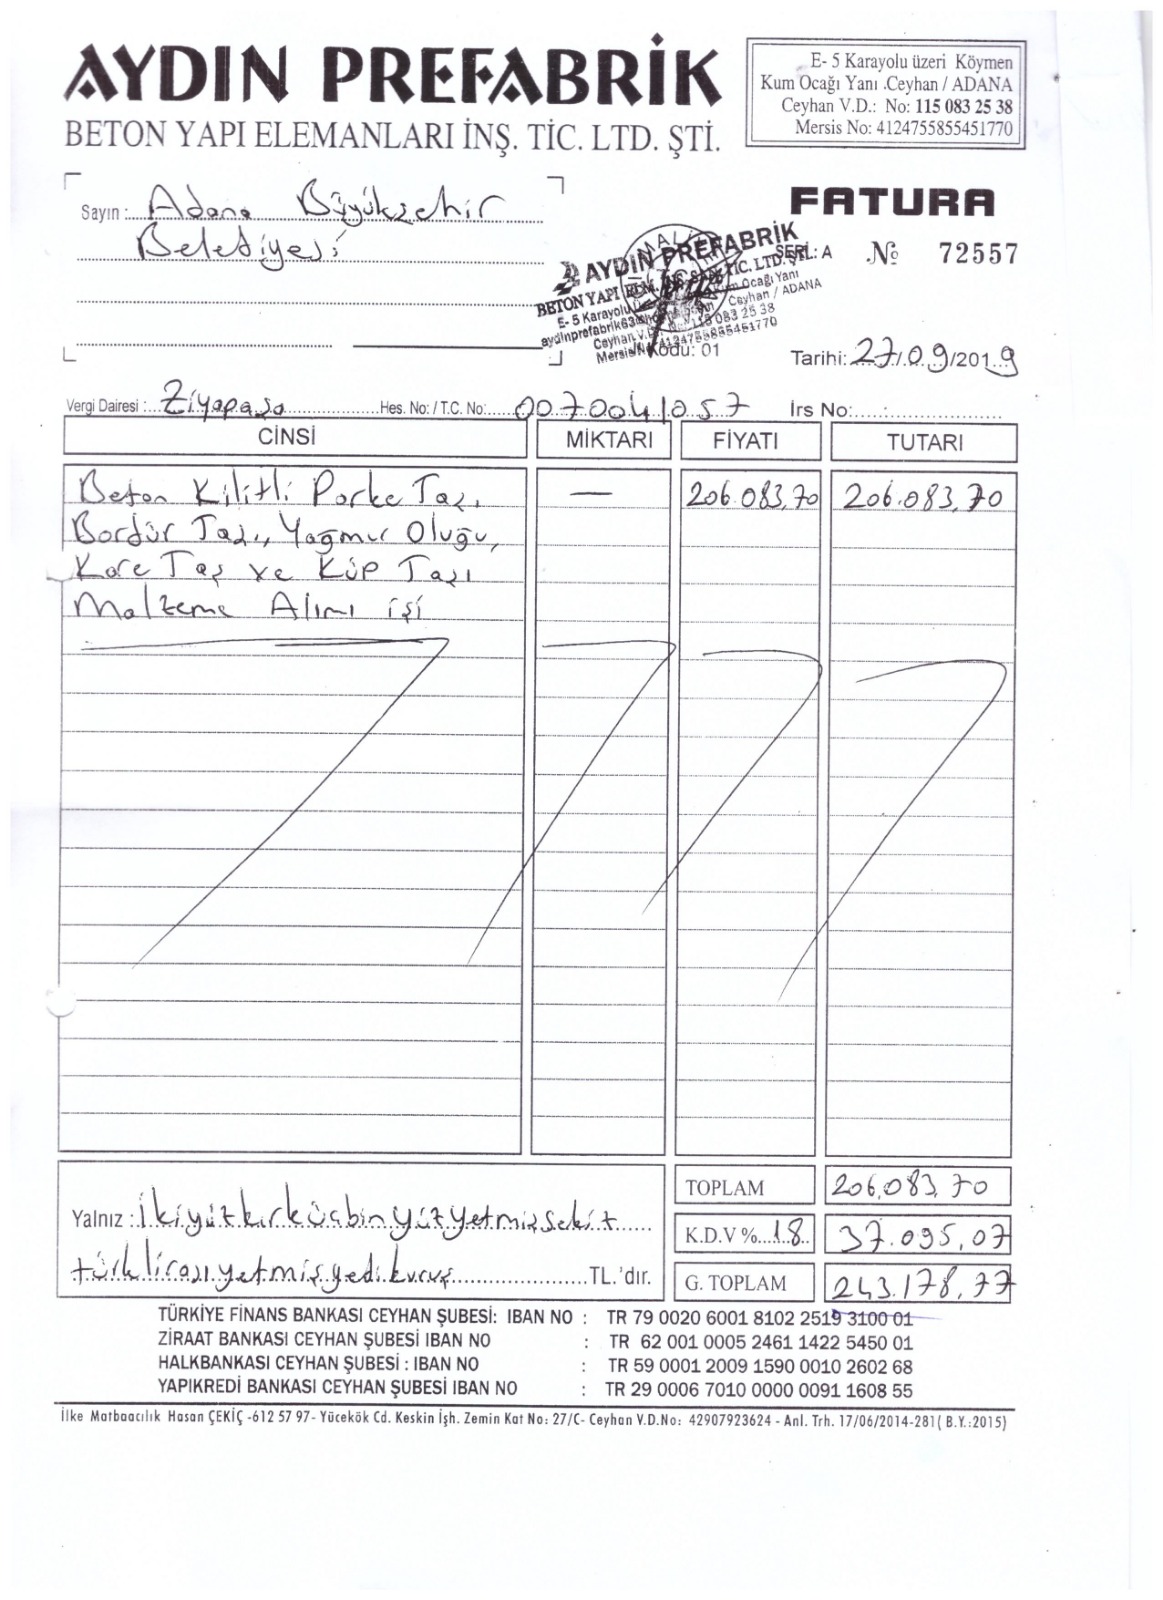 AYDIN PREFABRİK
BETON YAPI ELEMANLARI İNŞ. TİC. LTD. ŞTİ.
E- 5 Karayolu üzeri Köymen
Kum Ocağı Yanı .Ceyhan / ADANA
Ceyhan V.D.: No: 115 083 25 38
Mersis No: 4124755855451770
Sayın : Adana Büyükşehir
Belediyesi
FATURA
SERİ: A № 72557
AYDIN PREFABRİK
BETON YAPI ELM. İNŞ. SAN. TİC. LTD. ŞTİ.
E- 5 Karayolu Kum Ocağı Yanı
Ceyhan / ADANA
Ceyhan V.D. 115 083 25 38
Mersis 4124755855451770
Kodu: 01
Tarihi: 27/09/2019
Vergi Dairesi : Ziyapaşa Hes. No: / T.C. No: 0070041057 İrs No:
CİNSİ MİKTARI FİYATI TUTARI
Beton Kilitli Parke Taşı, — 206.083,70 206.083,70
Bordür Taşı, Yağmur Oluğu,
Kare Taş ve Küp Taşı
Malzeme Alımı işi
TOPLAM 206.083,70
Yalnız : ikiyüzkırküçbinyüzyetmişsekiz
K.D.V %18 37.095,07
türklirasıyetmişyedikuruş TL.'dır.
G. TOPLAM 243.178,77
TÜRKİYE FİNANS BANKASI CEYHAN ŞUBESİ: IBAN NO : TR 79 0020 6001 8102 2519 3100 01
ZİRAAT BANKASI CEYHAN ŞUBESİ IBAN NO : TR 62 001 0005 2461 1422 5450 01
HALKBANKASI CEYHAN ŞUBESİ : IBAN NO : TR 59 0001 2009 1590 0010 2602 68
YAPIKREDİ BANKASI CEYHAN ŞUBESİ IBAN NO : TR 29 0006 7010 0000 0091 1608 55
İlke Matbaacılık Hasan ÇEKİÇ -612 57 97- Yücekök Cd. Keskin İşh. Zemin Kat No: 27/C- Ceyhan V.D.No: 42907923624 - Anl. Trh. 17/06/2014-281( B.Y.:2015)